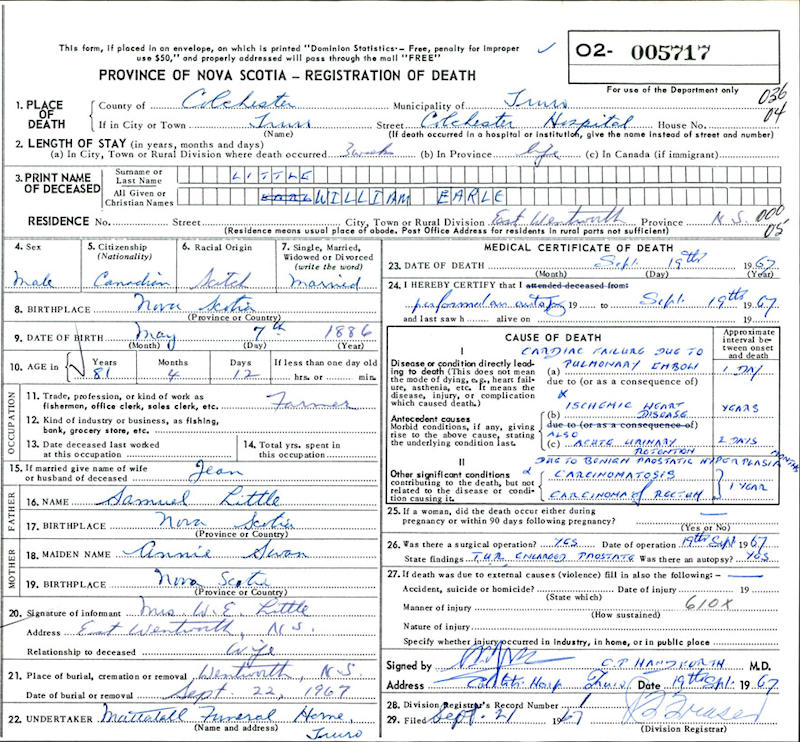 This form, if placed in an envelope, on which is printed "Dominion Statistics — Free, penalty for improper
use $50," and properly addressed will pass through the mail "FREE"
PROVINCE OF NOVA SCOTIA — REGISTRATION OF DEATH
O2- 005717
For use of the Department only
036
04
1. PLACE OF DEATH
County of Colchester Municipality of Truro
If in City or Town Truro Street Colchester Hospital House No.
(Name) (If death occurred in a hospital or institution, give the name instead of street and number)
2. LENGTH OF STAY (in years, months and days)
(a) In City, Town or Rural Division where death occurred 3 weeks (b) In Province life (c) In Canada (if immigrant)
3. PRINT NAME OF DECEASED
Surname or Last Name LITTLE
All Given or Christian Names EARL WILLIAM EARLE
RESIDENCE No. Street City, Town or Rural Division East Wentworth Province N.S.
000
05
(Residence means usual place of abode. Post Office Address for residents in rural parts not sufficient)
4. Sex
Male
5. Citizenship (Nationality)
Canadian
6. Racial Origin
Scotch
7. Single, Married, Widowed or Divorced (write the word)
Married
8. BIRTHPLACE Nova Scotia
(Province or Country)
9. DATE OF BIRTH May 7th 1886
(Month) (Day) (Year)
10. AGE in Years Months Days If less than one day old
81 4 12 hrs. or min.
OCCUPATION
11. Trade, profession, or kind of work as
fisherman, office clerk, sales clerk, etc. Farmer
12. Kind of industry or business, as fishing,
bank, grocery store, etc.
13. Date deceased last worked
at this occupation
14. Total yrs. spent in
this occupation
15. If married give name of wife
or husband of deceased Jean
FATHER
16. NAME Samuel Little
17. BIRTHPLACE Nova Scotia
(Province or Country)
MOTHER
18. MAIDEN NAME Annie Swan
19. BIRTHPLACE Nova Scotia
(Province or Country)
20. Signature of informant Mrs W. E. Little
Address East Wentworth, N.S.
Relationship to deceased Wife
21. Place of burial, cremation or removal Wentworth, N.S.
Date of burial or removal Sept. 22, 1967
22. UNDERTAKER Mattatall Funeral Home,
(Name and address) Truro
MEDICAL CERTIFICATE OF DEATH
23. DATE OF DEATH Sept. 19th 1967
(Month) (Day) (Year)
24. I HEREBY CERTIFY that I attended deceased from:
performed an autopsy 19 to Sept. 19th 1967
and last saw h alive on 19
CAUSE OF DEATH
Approximate interval between onset and death
I
Disease or condition directly leading to death (This does not mean the mode of dying, e.g., heart failure, asthenia, etc. It means the disease, injury, or complication which caused death.)
CARDIAC FAILURE DUE TO
(a) PULMONARY EMBOLI 1 DAY
due to (or as a consequence of)
Antecedent causes
Morbid conditions, if any, giving rise to the above cause, stating the underlying condition last.
(b) ISCHEMIC HEART DISEASE YEARS
due to (or as a consequence of)
ALSO
(c) ACUTE URINARY RETENTION 2 DAYS
DUE TO BENIGN PROSTATIC HYPERPLASIA MONTHS
II
Other significant conditions contributing to the death, but not related to the disease or condition causing it.
CARCINOMATOSIS
CARCINOMA of RECTUM 1 YEAR
25. If a woman, did the death occur either during
pregnancy or within 90 days following pregnancy?
(Yes or No)
26. Was there a surgical operation? YES Date of operation 19th Sept 1967
State findings T.U.R. ENLARGED PROSTATE Was there an autopsy? YES
27. If death was due to external causes (violence) fill in also the following:-
Accident, suicide or homicide? Date of injury 19
(State which)
Manner of injury 610X
(How sustained)
Nature of injury
Specify whether injury occurred in industry, in home, or in public place
Signed by C.P. HANDFORTH M.D.
Address Hosp Truro Date 19th Sept. 1967
28. Division Registrar's Record Number
29. Filed Sept. 21 1967
Fraser
(Division Registrar)